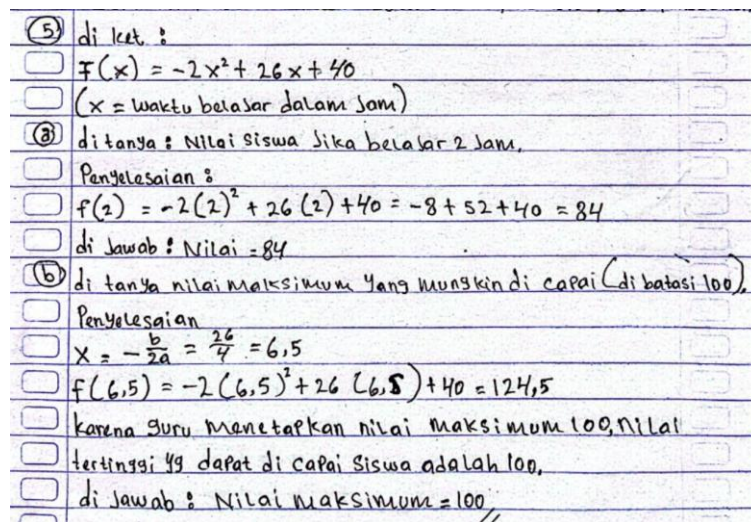 5) di ket :
F(x) = -2x² + 26x + 40
(x = waktu belajar dalam Jam)
a) ditanya : Nilai siswa Jika belajar 2 Jam.
Penyelesaian :
f(2) = -2(2)² + 26(2) + 40 = -8 + 52 + 40 = 84
di Jawab : Nilai = 84
b) di tanya nilai maksimum yang mungkin di capai (di batasi 100).
Penyelesaian
x = -b/2a = 26/4 = 6,5
f(6,5) = -2(6,5)² + 26 (6,5) + 40 = 124,5
karena guru menetapkan nilai maksimum 100, nilai
tertinggi yg dapat di capai siswa adalah 100.
di Jawab : Nilai maksimum = 100 //